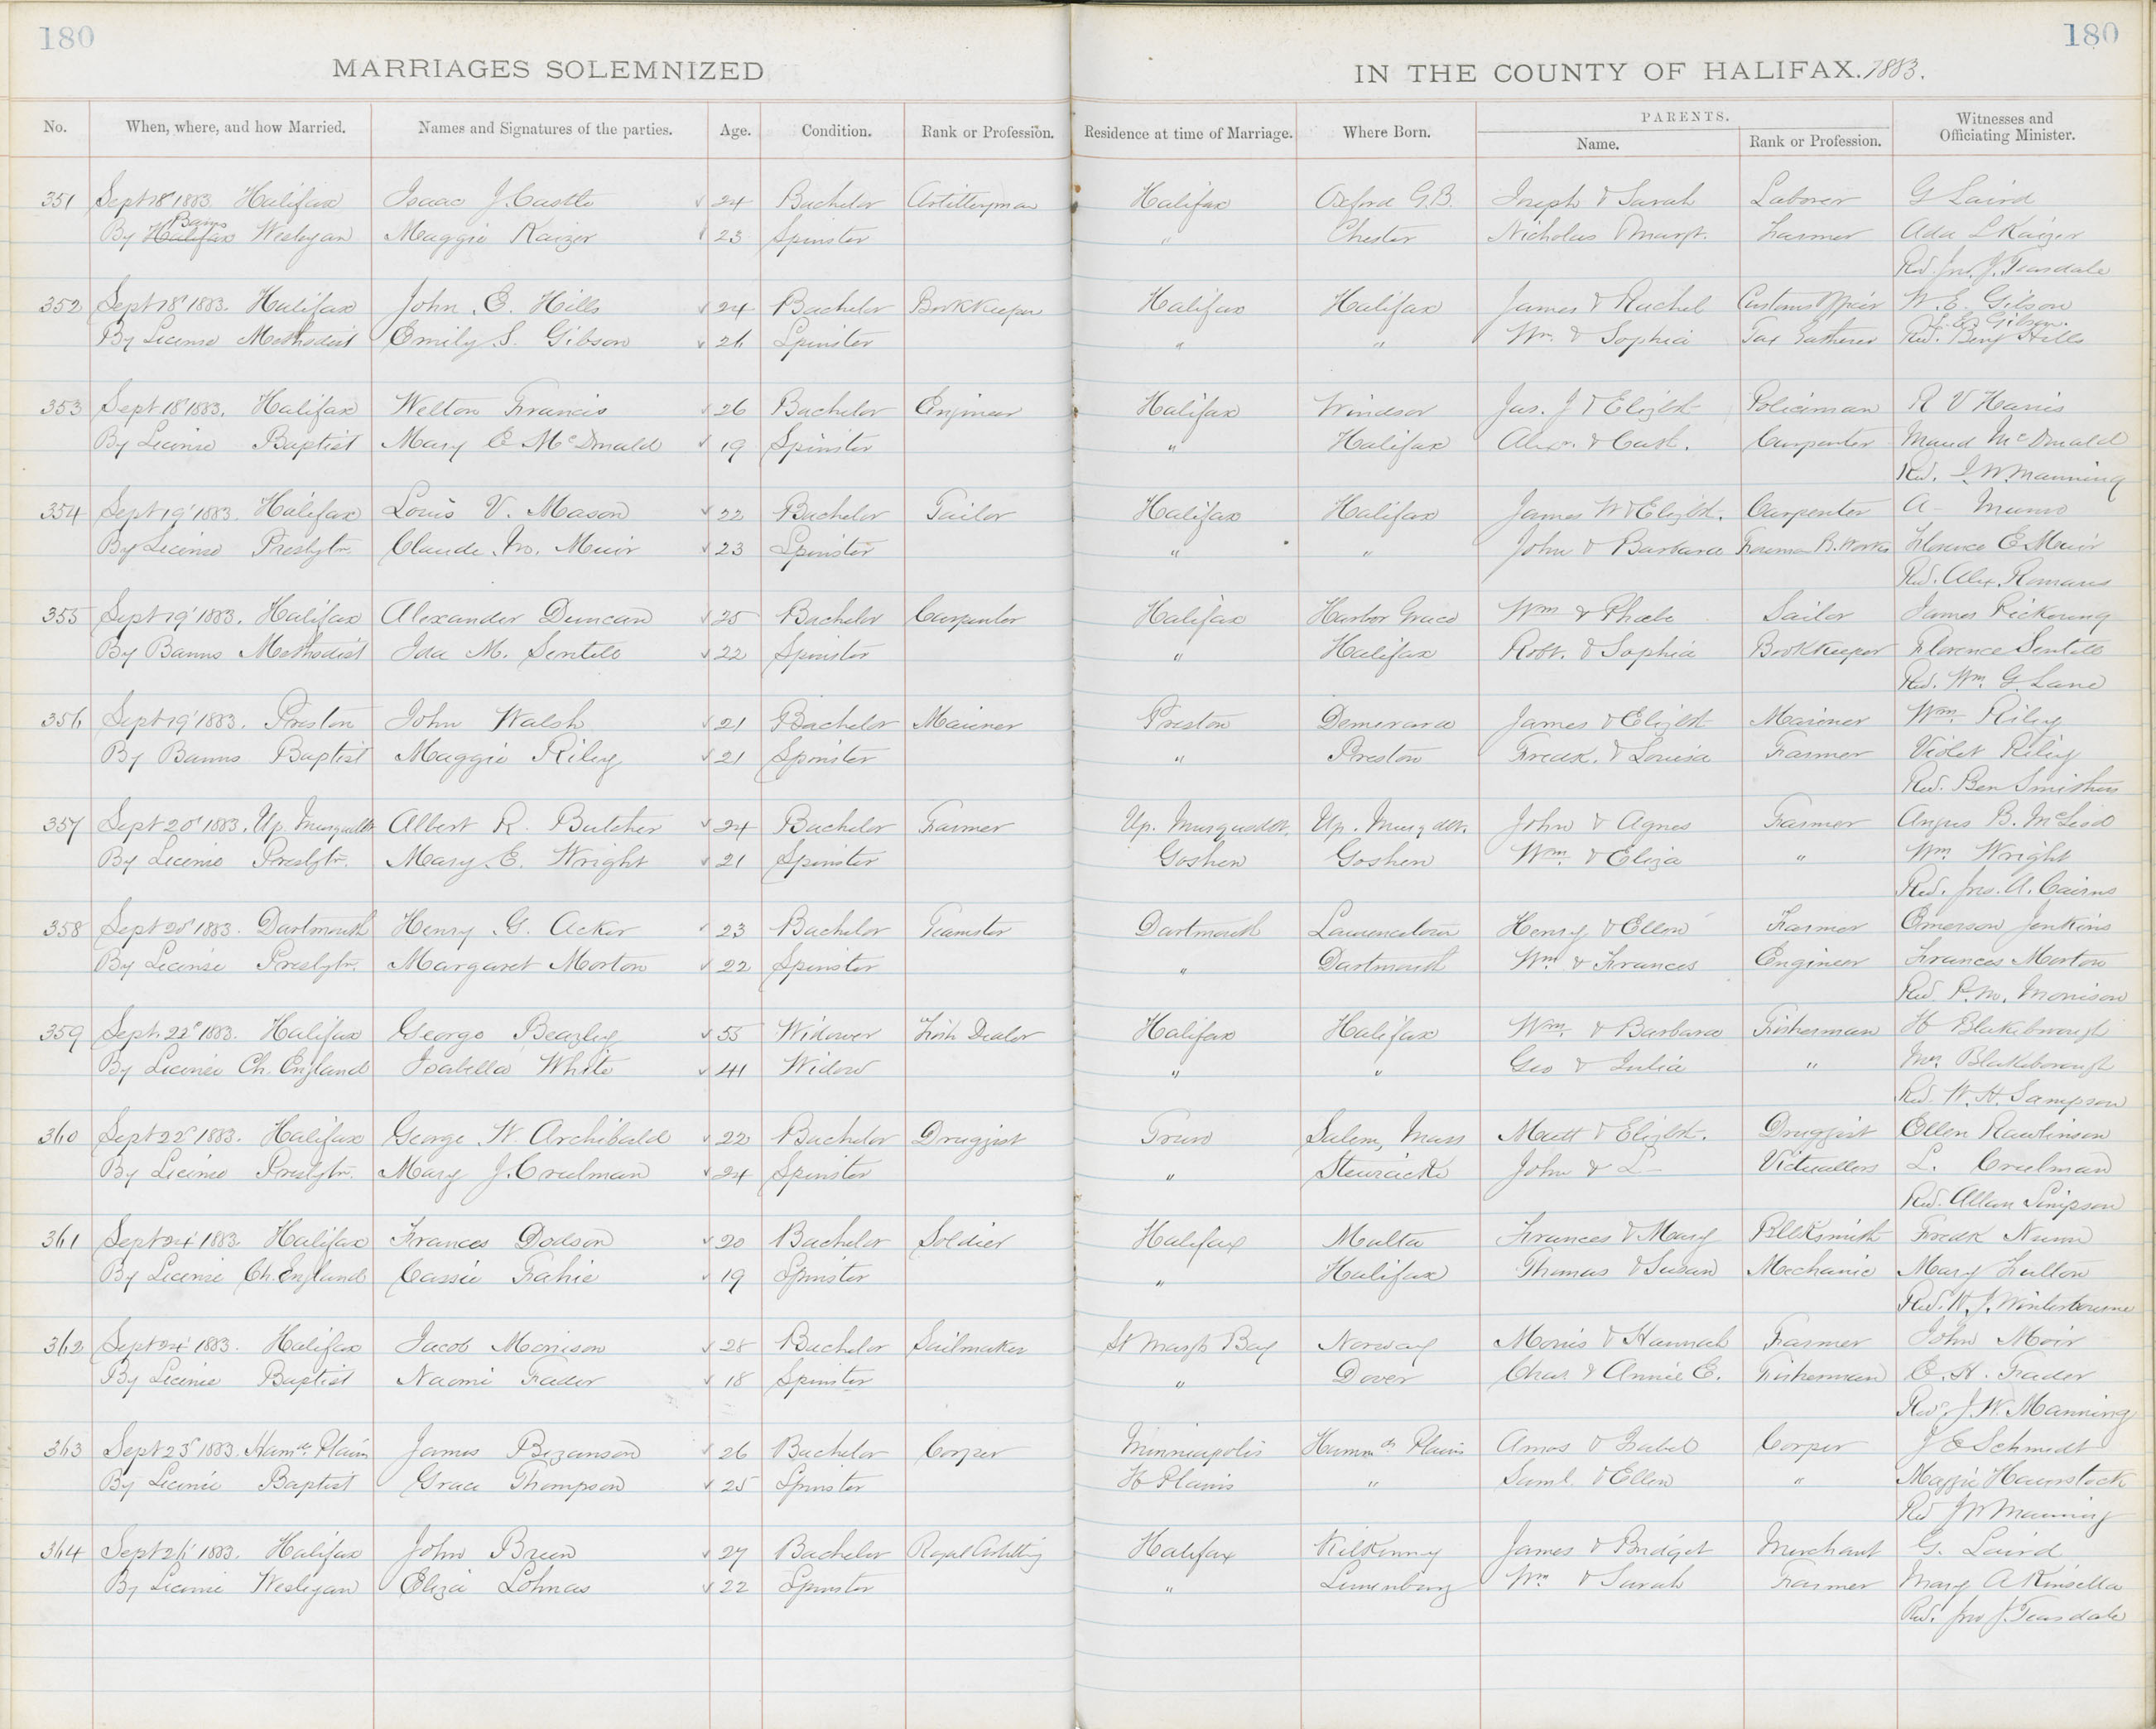 180
180
MARRIAGES SOLEMNIZED
IN THE COUNTY OF HALIFAX. 1883.
No. When, where, and how Married. Names and Signatures of the parties. Age. Condition. Rank or Profession. Residence at time of Marriage. Where Born. PARENTS. Name. Rank or Profession. Witnesses and Officiating Minister.
351 Sept 18 1883 Halifax Isaac J. Castle 24 Bachelor Artilleryman Halifax Oxford G.B. Joseph & Sarah Laborer G Laird
By Halifax Banns Wesleyan Maggie Kaizer 23 Spinster " Chester Nicholas & Margt. Farmer Ada L Kaizer
Rev. Jno. J. Teasdale
352 Sept 18 1883. Halifax John E. Hills 24 Bachelor Bookkeeper Halifax Halifax James & Rachel Customs Officer W. E. Gibson
L. E. Gibson.
By License Methodist Emily S. Gibson 26 Spinster " " Wm. & Sophia Tax Gatherer Rev. Benj Hills
353 Sept 18 1883. Halifax Welton Francis 26 Bachelor Engineer Halifax Windsor Jas. J & Elizbt Policeman R V Harris
By License Baptist Mary E McDonald 19 Spinster " Halifax Alexr. & Cath. Carpenter Maud McDonald
Rev. J. W. Manning
354 Sept 19 1883. Halifax Louis V. Mason 22 Bachelor Tailor Halifax Halifax James W & Elizbt. Carpenter A- Munro
By License Presbytr. Claude M. Muir 23 Spinster " " John & Barbara Foreman B. Works Florence E Muir
Rev. Alex. Romans
355 Sept 19 1883. Halifax Alexander Duncan 25 Bachelor Carpenter Halifax Harbor Grace Wm & Phoebe Sailor James Pickering
By Banns Methodist Ida M. Sentell 22 Spinster " Halifax Robt. & Sophia Bookkeeper Florence Sentell
Rev. Wm. G. Lane
356 Sept 19 1883. Preston John Walsh 21 Bachelor Mariner Preston Demerara James & Elizbt Mariner Wm. Riley
By Banns Baptist Maggie Riley 21 Spinster " Preston Fredk. & Louisa Farmer Violet Riley
Rev. Ben Smithers
357 Sept 20 1883. Up. Musquodt Albert R. Butcher 24 Bachelor Farmer Up. Musquodot. Up. Musqdot. John & Agnes Farmer Angus B. McLeod
By License Presbytr. Mary E. Wright 21 Spinster Goshen Goshen Wm. & Eliza " Wm Wright
Rev. Jno. A. Cairns
358 Sept 20 1883. Dartmouth Henry G. Acker 23 Bachelor Teamster Dartmouth Lawrencetown Henry & Ellen Farmer Emerson Jenkins
By License Presbytr. Margaret Morton 22 Spinster " Dartmouth Wm & Frances Engineer Frances Morton
Rev. P. M. Morrison
359 Sept 22 1883. Halifax George Beazley 55 Widower Fish Dealer Halifax Halifax Wm. & Barbara Fisherman H Blakeborough
By License Ch. England Isabella White 41 Widow " " Geo & Julia " Mrs Blakeborough
Rev. W. H. Sampson
360 Sept 22 1883. Halifax George W. Archibald 22 Bachelor Druggist Truro Salem, Mass Matt & Elizbt. Druggist Ellen Rawlinson
By License Presbytr. Mary J. Creelman 24 Spinster " Stewiacke John & L- Victuallers L. Creelman
Rev. Allan Simpson
361 Sept 24 1883. Halifax Frances Dodson 20 Bachelor Soldier Halifax Malta Frances & Mary Blksmith Fredk Nunn
By License Ch. England Cassie Fahie 19 Spinster " Halifax Thomas & Susan Mechanic Mary Fulton
Rev. W. J. Winterbourne
362 Sept 24 1883. Halifax Jacob Morrison 28 Bachelor Sailmaker St Margts Bay Norway Morris & Hannah Farmer John Moir
By License Baptist Naomi Frader 18 Spinster " Dover Chas & Annie E. Fisherman E. H. Frader
Revd. J. W. Manning
363 Sept 25 1883. Hamds Plains James Bezanson 26 Bachelor Cooper Minneapolis Hammds Plains Amos & Isabel Cooper J E Schmidt
By License Baptist Grace Thompson 25 Spinster H Plains " Saml. & Ellen " Maggie Haunstock
Rev J W Manning
364 Sept 26 1883. Halifax John Breen 27 Bachelor Royal Artillery Halifax Kilkenny James & Bridget Merchant G. Laird
By License Wesleyan Eliza Lohnas 22 Spinster " Lunenburg Wm & Sarah Farmer Mary A Kinsella
Rev. Jno J. Teasdale